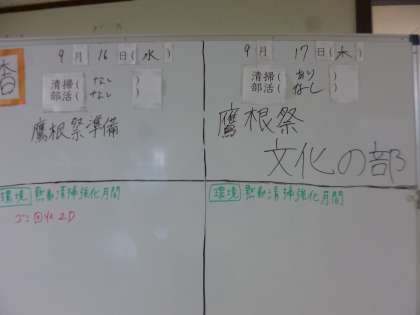 9月 16日(水)
清掃(なし)
部活(なし)
鷹根祭準備
[環境] 熱動清掃強化月間
ゴミ回収 2D
9月 17日(木)
清掃(あり)
部活(なし)
鷹根祭
文化の部
[環境] 熱動清掃強化月間